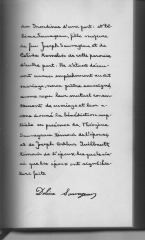 des Trinidaines d'une part: et Hé-
lène Sauvageau, fille mineure
de feu Joseph Sauvageau, et de
de cette paroisse
d'autre part. Ne s'étant décou-
vert aucun empêchement au dit
mariage, nous, prêtre soussigné
avons reçu leur mutuel consen-
tement de mariage et leur a-
vons donné la bénédiction nup-
tiale en présence de
Sauvageau témoin de l'épouse,
et de Joseph Guilbault
témoin de l'époux, lesquels ain-
si que les époux ont signé
lecture faite
Sauvageau